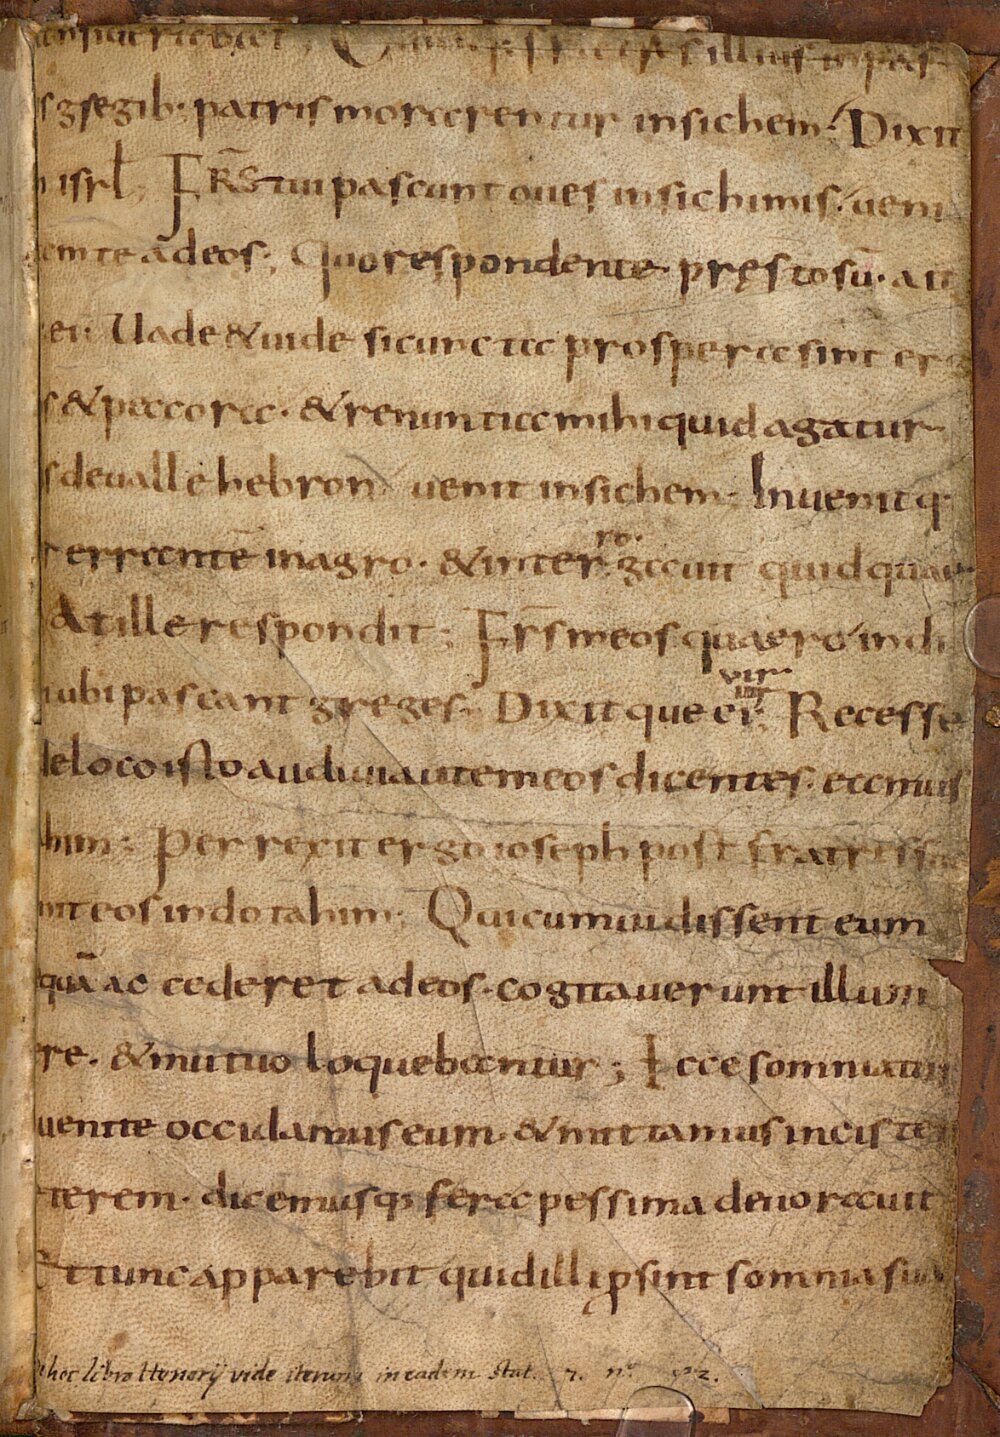 Cumq; fratres illius in pas
s gregib: patris morarentur insichem. Dixit
isrl; FRS tui pascunt oues insichimis. ueni
am te adeos; Quo respondente. pręsto sū. ait
ei. Uade & uide si cuncta prospera sint erg
s & peccora. & renuntia mihi quid agatur
s deualle hebron. uenit insichem. Inuenitq;
r errantē in agro. & interro.gauit quid quaer
At ille respondit; Frs meos quaero indi
ubi pascant greges. Dixit que ei vir. Recesse
de loco isto audiui autem eos dicentes. eamus
him; Perrexit ergo ioseph post fratres su
nit eos in dotahim. Qui cum uidissent eum
quā ac cederet adeos. cogitauerunt illum
re. & mutuo loquebantur; Ecce somniator
uenite occidamus eum. & mittamus in cister
terem. dicemusq; fera pessima deuorauit
Et tunc apparebit quid illi p sint somnia sua
hoc libro Honorij vide iterum in eadem stat. 7. nº 92.